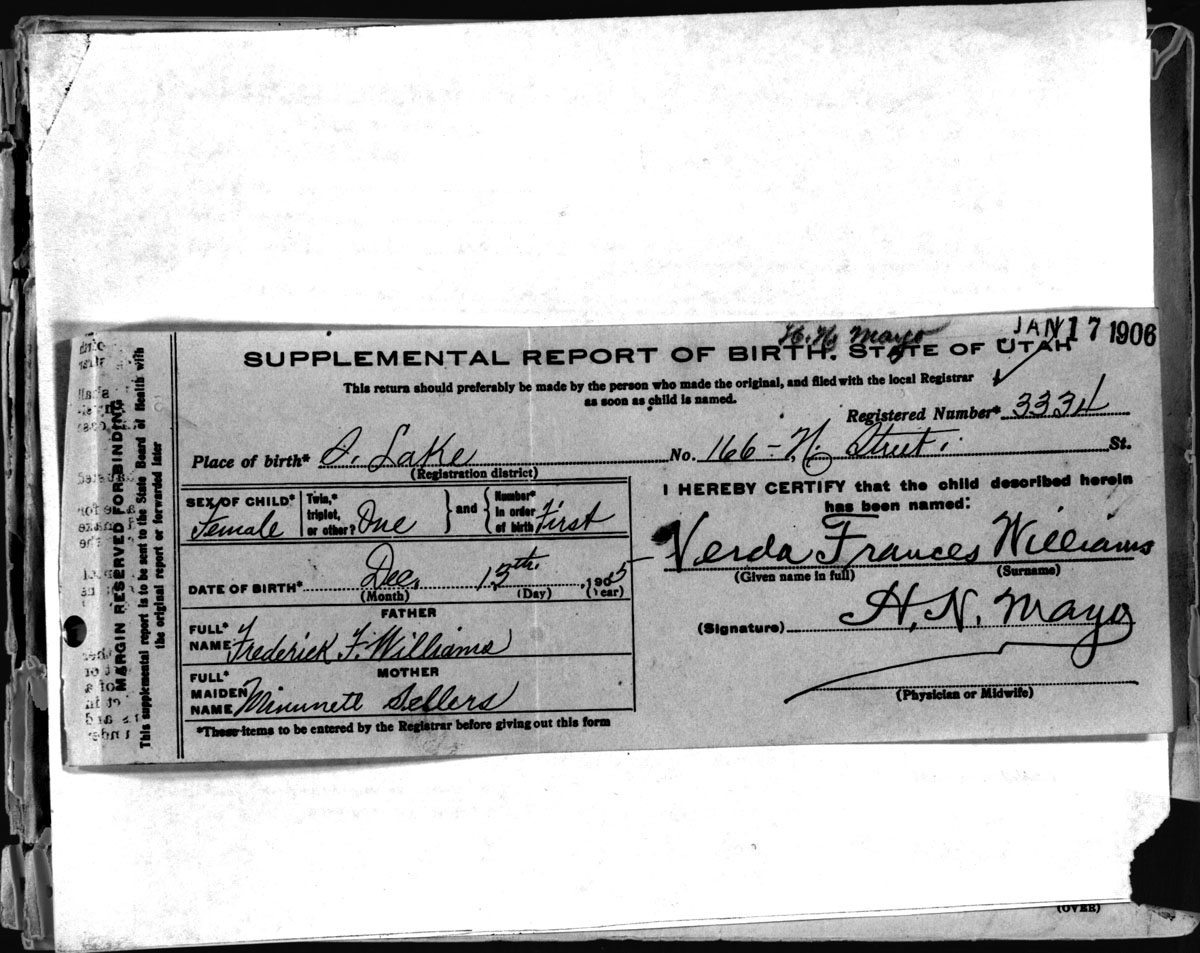 H. N. Mayo
JAN 17 1906
SUPPLEMENTAL REPORT OF BIRTH. STATE OF UTAH
This return should preferably be made by the person who made the original, and filed with the local Registrar
as soon as child is named.
Registered Number* 3334
Place of birth* S. Lake No. 166 - N. Street. St.
(Registration district)
SEX OF CHILD* Female
Twin,*
triplet,
or other? One
} and {
Number*
in order
of birth First
DATE OF BIRTH* Dec. 15th. , 1905
(Month) (Day) (Year)
FATHER
FULL*
NAME Frederick F. Williams
MOTHER
FULL*
MAIDEN
NAME Minunett Sellers
*These items to be entered by the Registrar before giving out this form
I HEREBY CERTIFY that the child described herein
has been named:
Verda Frances Williams
(Given name in full) (Surname)
(Signature) H. N. Mayo
(Physician or Midwife)
MARGIN RESERVED FOR BINDING
This supplemental report is to be sent to the State Board of Health with
the original report or forwarded later
(OVER)